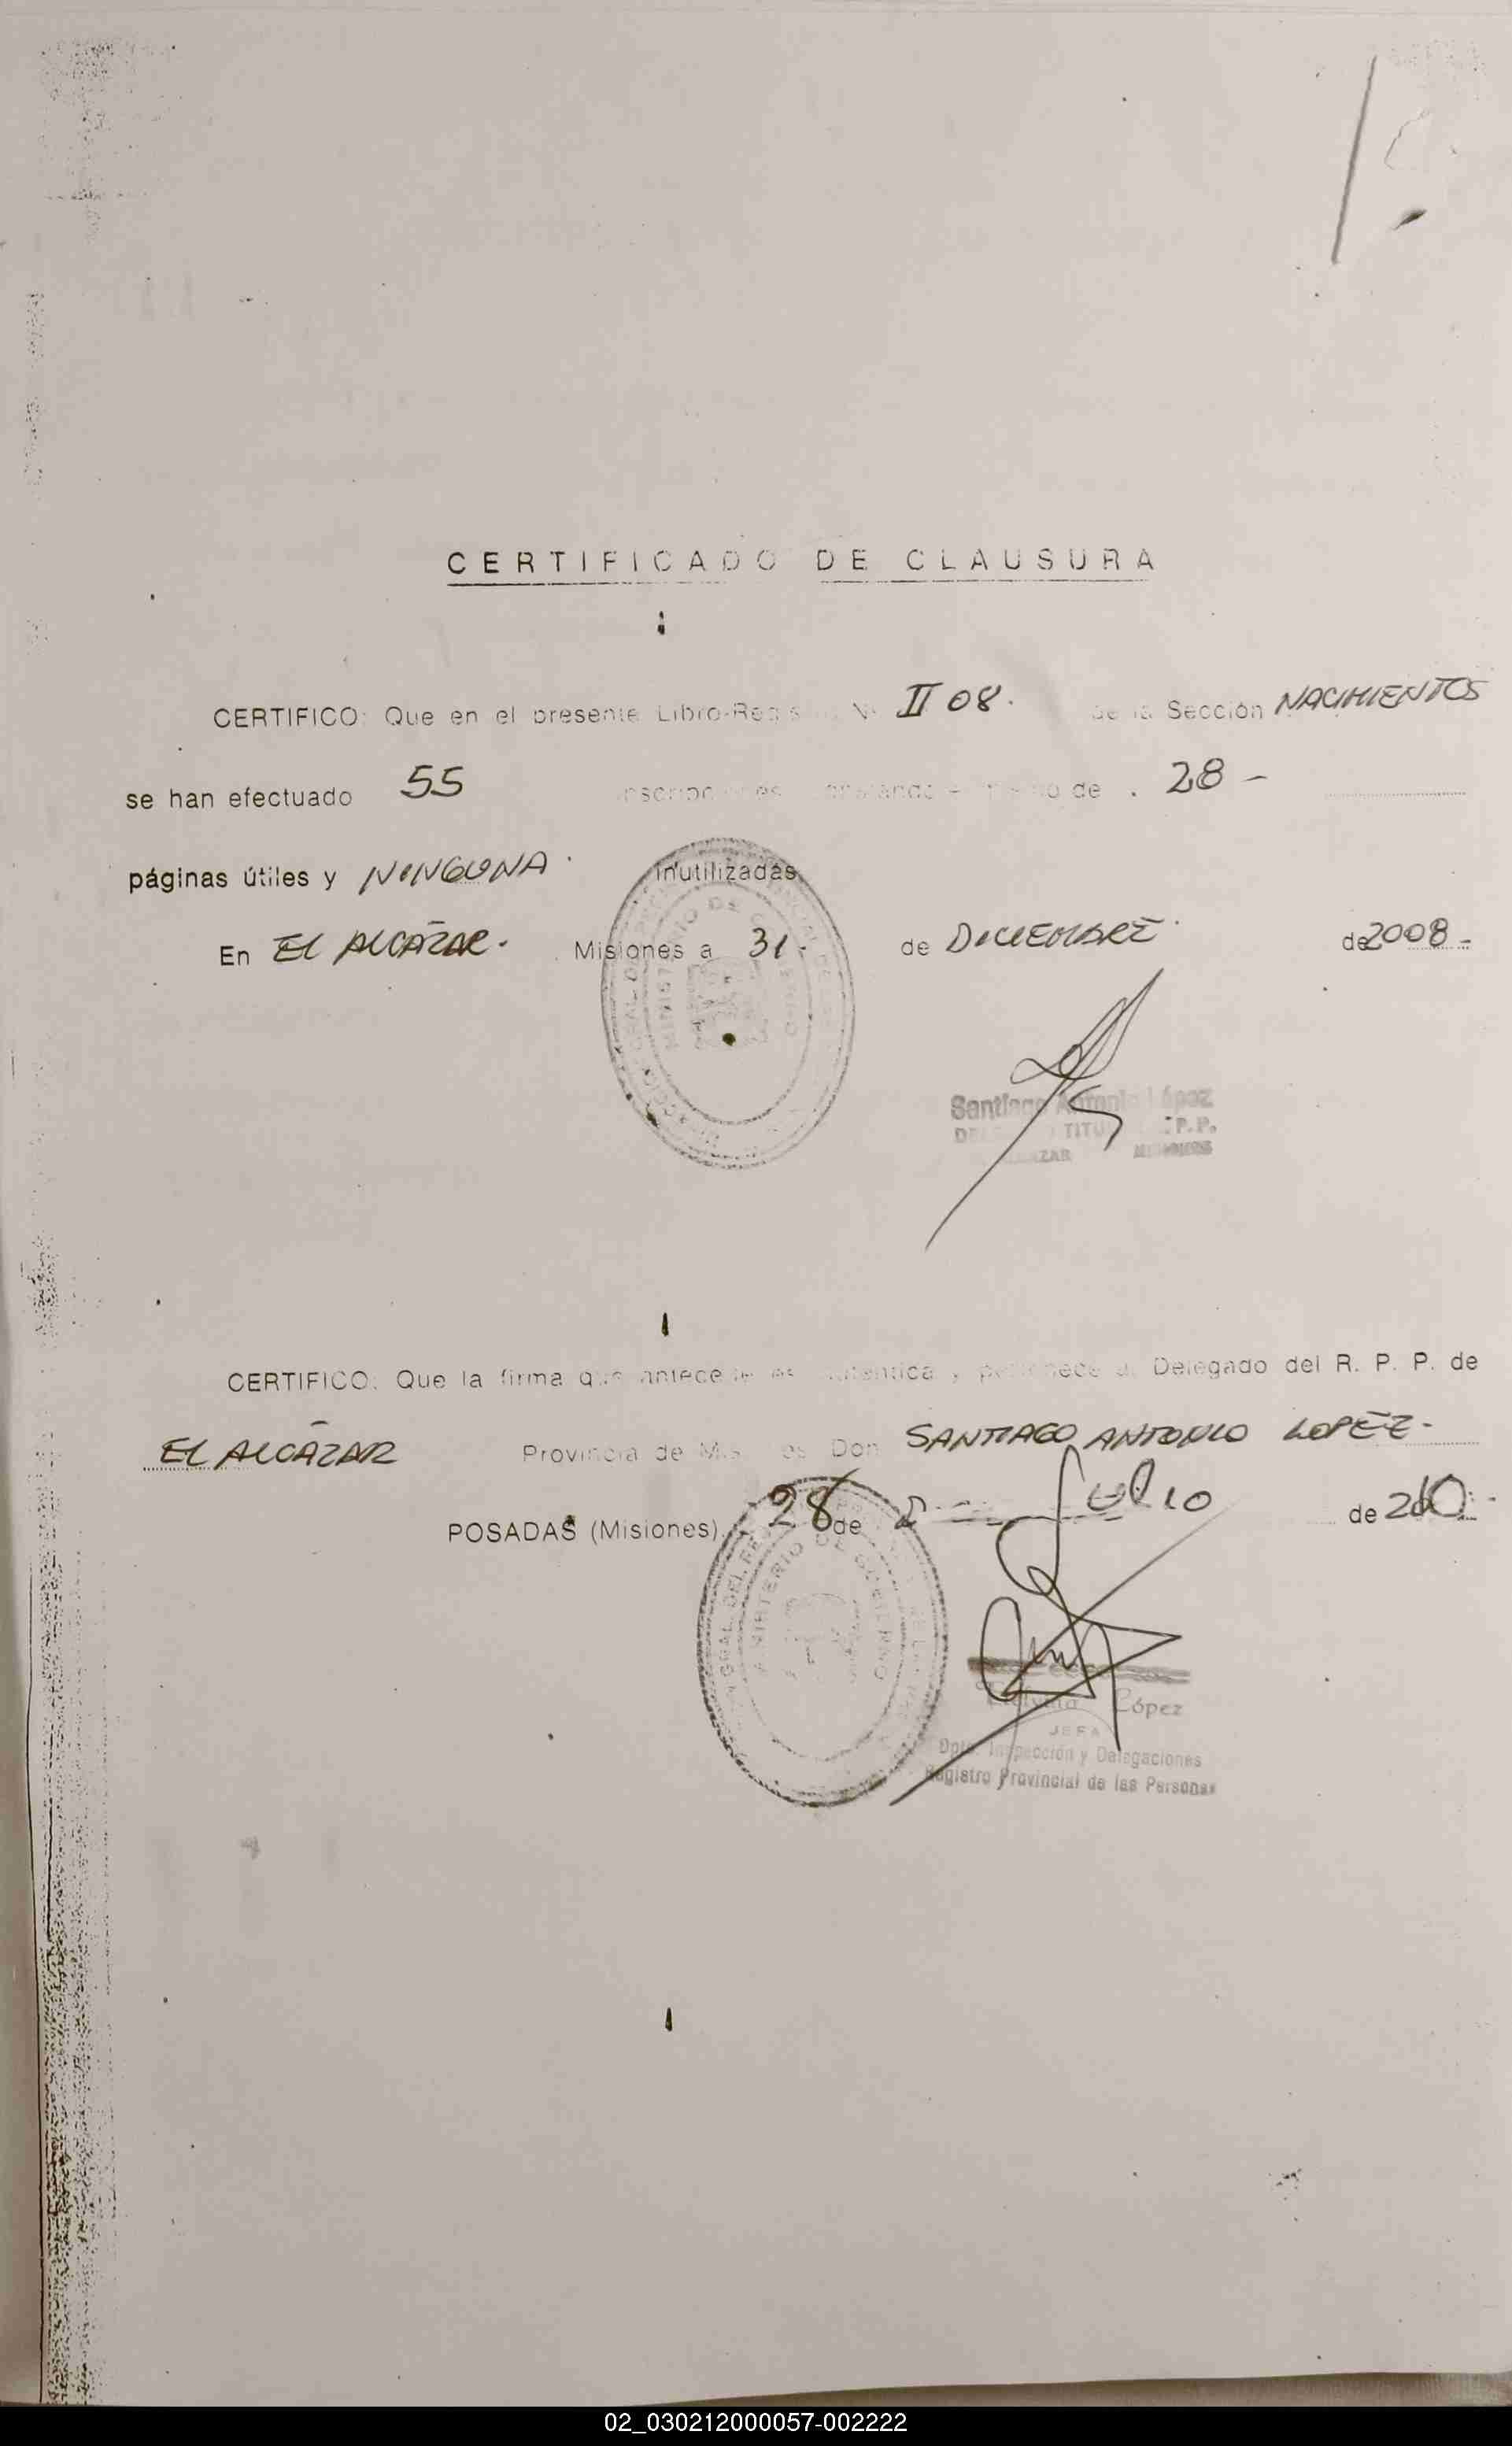 CERTIFICADO DE CLAUSURA
CERTIFICO: Que en el presente Libro-Registro Nº II 08. de la Sección NACIMIENTOS
se han efectuado 55 inscripciones de . 28 -
páginas útiles y NINGUNA. inutilizadas
En EL ALCAZAR. Misiones a 31. de DICIEMBRE. de 2008 -
Santiago Antonio López
TITU P.P.
AZAR MISIONES
CERTIFICO: Que la firma que antecede es auténtica y pertenece al Delegado del R. P. P. de
EL ALCAZAR Provincia de Misiones Don SANTIAGO ANTONIO LOPEZ.-
POSADAS (Misiones), 28 de Julio de 2010.-
MINISTERIO DE GOBIERNO
López
JEFA
Dpto. Inspección y Delegaciones
Registro Provincial de las Personas
02_030212000057-002222